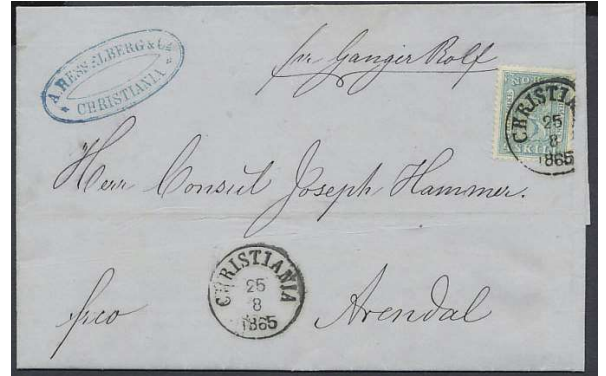 A. RESSELBERG & Co.
CHRISTIANIA
pr Ganger Rolf
NORGE
SKILL
CHRISTIANIA
25
8
1865
Herr Consul Joseph Hammer.
CHRISTIANIA
25
8
1865
frco
Arendal